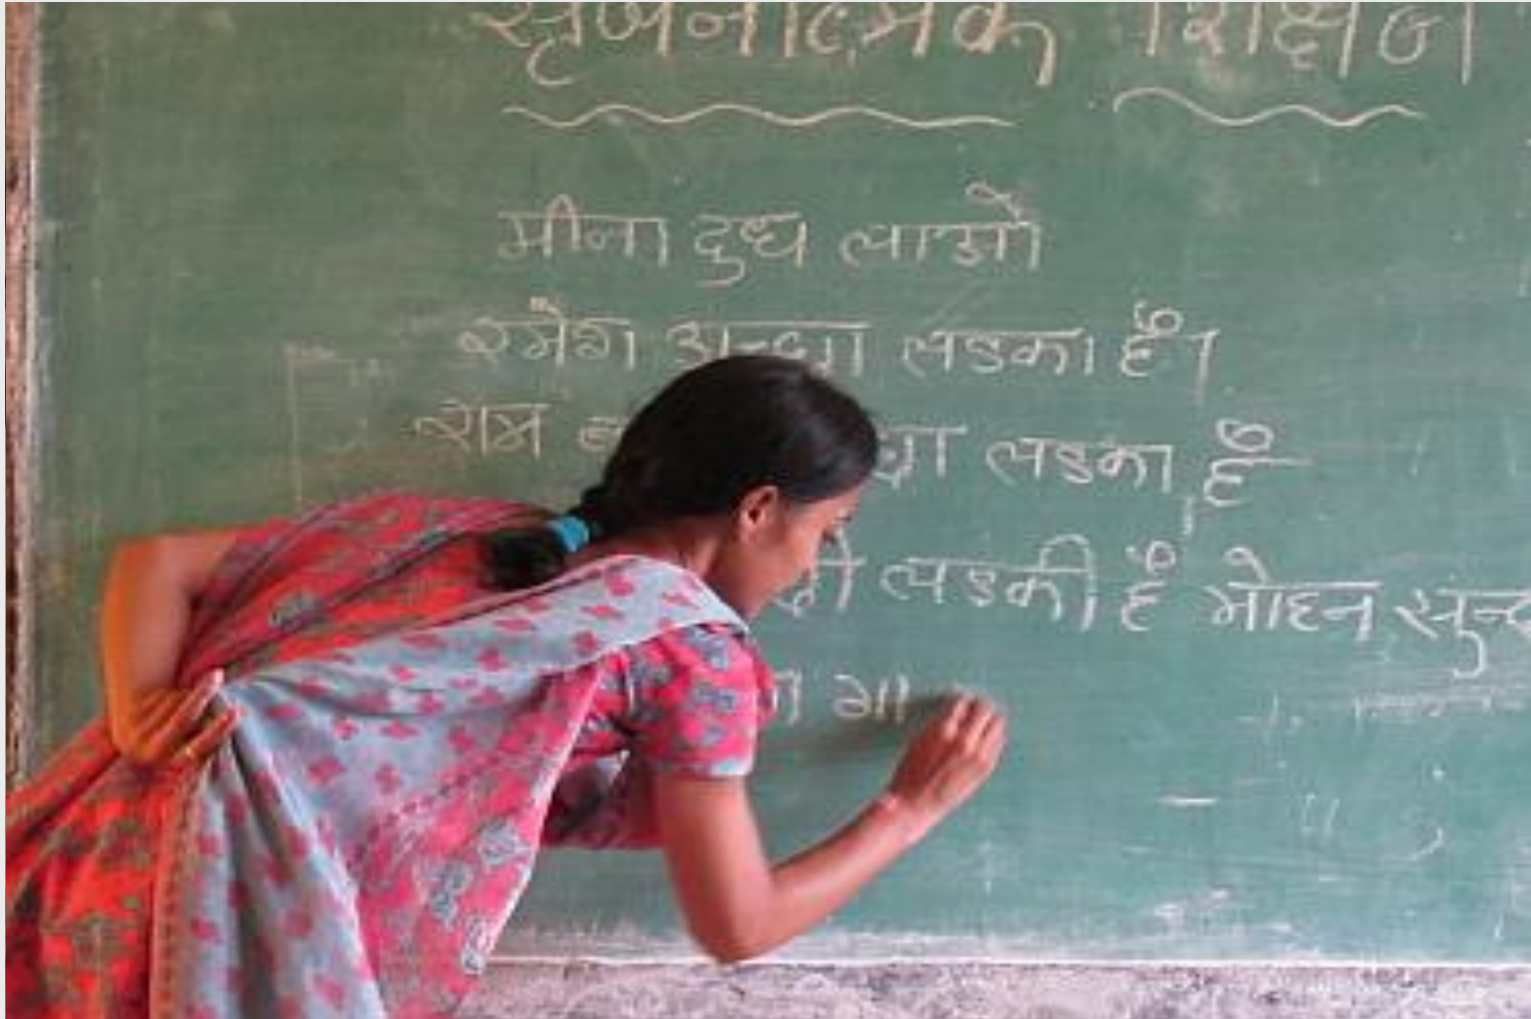 सृजनात्मक शिक्षण
मीना दुध लाओ
रमेश अच्छा लडका है।
राम लडका है
लडकी है मोहन सुन्द
गा